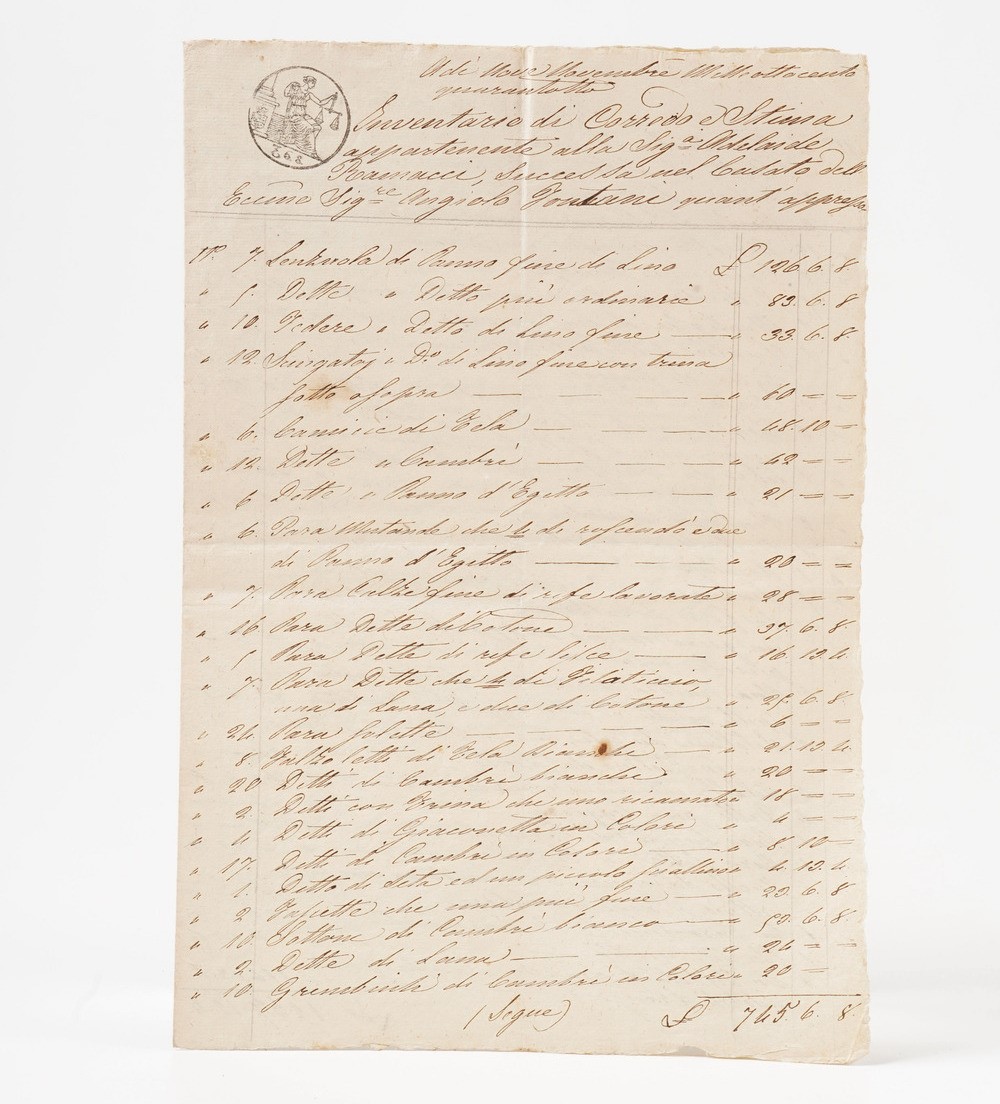 Adi Nove Novembre Mille ottocento
quarantotto
Inventario di Corredo e Stima
appartenente alla Sig.ª Adelaide
Ramacci, successa nel Casato dell
Eccmo Sig.re Angiolo Fontani quant' appresso
N.o 7. Lenzuola di Panno fine di Lino £ 126. 6. 8
" 5. Dette " Detto più ordinarie " 83. 6. 8
" 10. Federe " Detto di Lino fine — " 33. 6. 8.
" 12. Sciugatoj " D.o di Lino fine con trina
sotto e sopra — — — — " 60 = =
" 6. Camicie di Tela — — — " 48. 10 =
" 12. Dette " Cambrì — — — " 42 = =
" 6 Dette " Panno d'Egitto — — " 21 = =
" 6. Para Mutande che 4 di e due
di Panno d'Egitto — — — " 20 = =
" 7. Para Calze fine di refe lavorate " 28 = =
" 16 Para Dette di Cotone — — " 37. 6. 8
" 5 Para Dette di refe lisce — " 16. 13. 4.
" 7. Para Dette che 4 di Filaticcio,
una di Lana, e due di Cotone " 25. 6. 8.
" 24 Para Solette — — — — " 6 = =
" 8. Fazzoletti di Tela Bianchi — " 21. 13. 4.
" 20 Ditti di Cambrì bianchi " 20 = =
" 2. Ditti con Trina che uno ricamato " 18 = =
" 4 Ditti di Giaconetta in Colori " 4 = =
" 17. Ditti di Cambrì in Colori — " 8 10 =
" 1. Ditto di Seta ed un piccolo " 4. 13. 4
" 2 che una più fine — " 23. 6. 8
" 10. Sottane di Cambrì bianco — " 53. 6. 8.
" 2. Dette di Lana — — — " 24 = =
" 10. Grembiuli di Cambrì in Colori " 20 =
(Segue) £ 745. 6. 8.